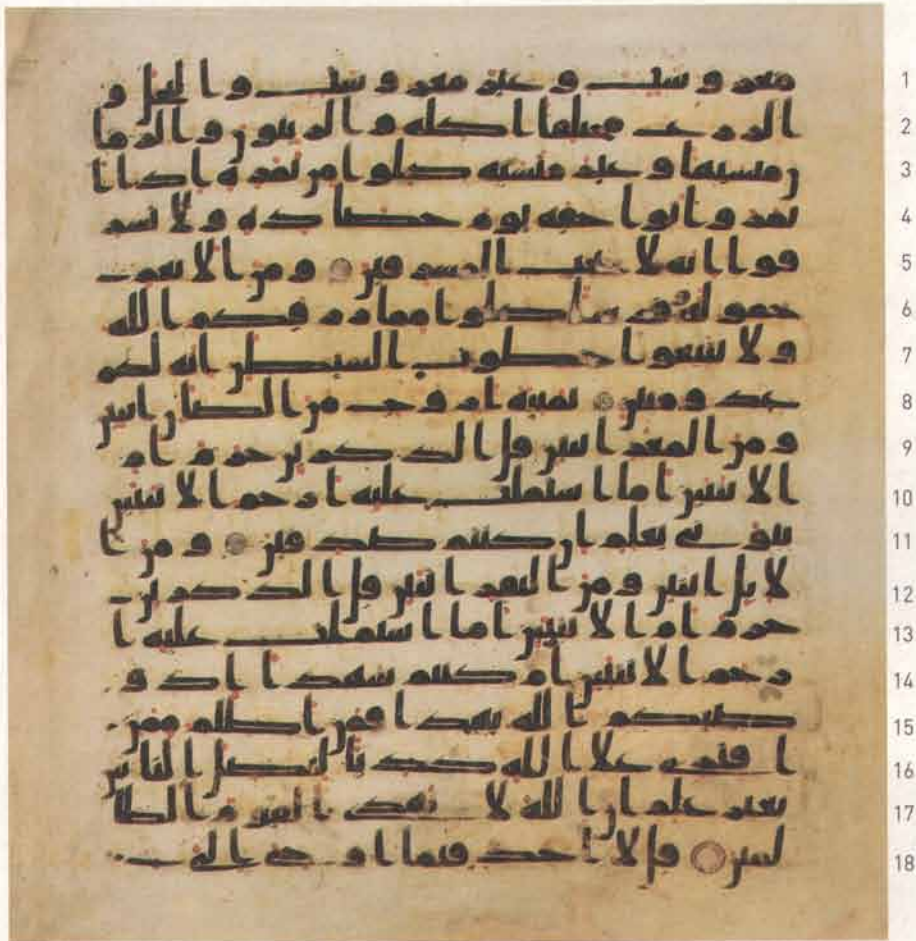 معروشت وغير معروشت والنخل و
الزرع مختلفا اكله والزيتون والرما
ن متشبها وغير متشبه كلوا من ثمره اذا ا
ثمر واتوا حقه يوم حصاده ولا تسر
فوا انه لا يحب المسرفين ومن الانعم
حمولة وفرشا كلوا مما رزقكم الله
ولا تتبعوا خطوت الشيطن انه لكم
عدو مبين ثمنية ازوج من الضان اثنين
ومن المعز اثنين قل الذكرين حرم ام
الانثيين اما اشتملت عليه ارحم الانثيين
نبوني بعلم ان كنتم صدقين ومن ا
لابل اثنين ومن البقر اثنين قل الذكرين
حرم ام الانثيين اما اشتملت عليه ا
رحم الانثيين ام كنتم شهدا اذ و
صيكم الله بهذا فمن اظلم ممن
افترى علا الله كذبا ليضل الناس
بغير علم ان الله لا يهدي القوم الظا
لمين قل لا اجد فيما اوحي الي
1
2
3
4
5
6
7
8
9
10
11
12
13
14
15
16
17
18